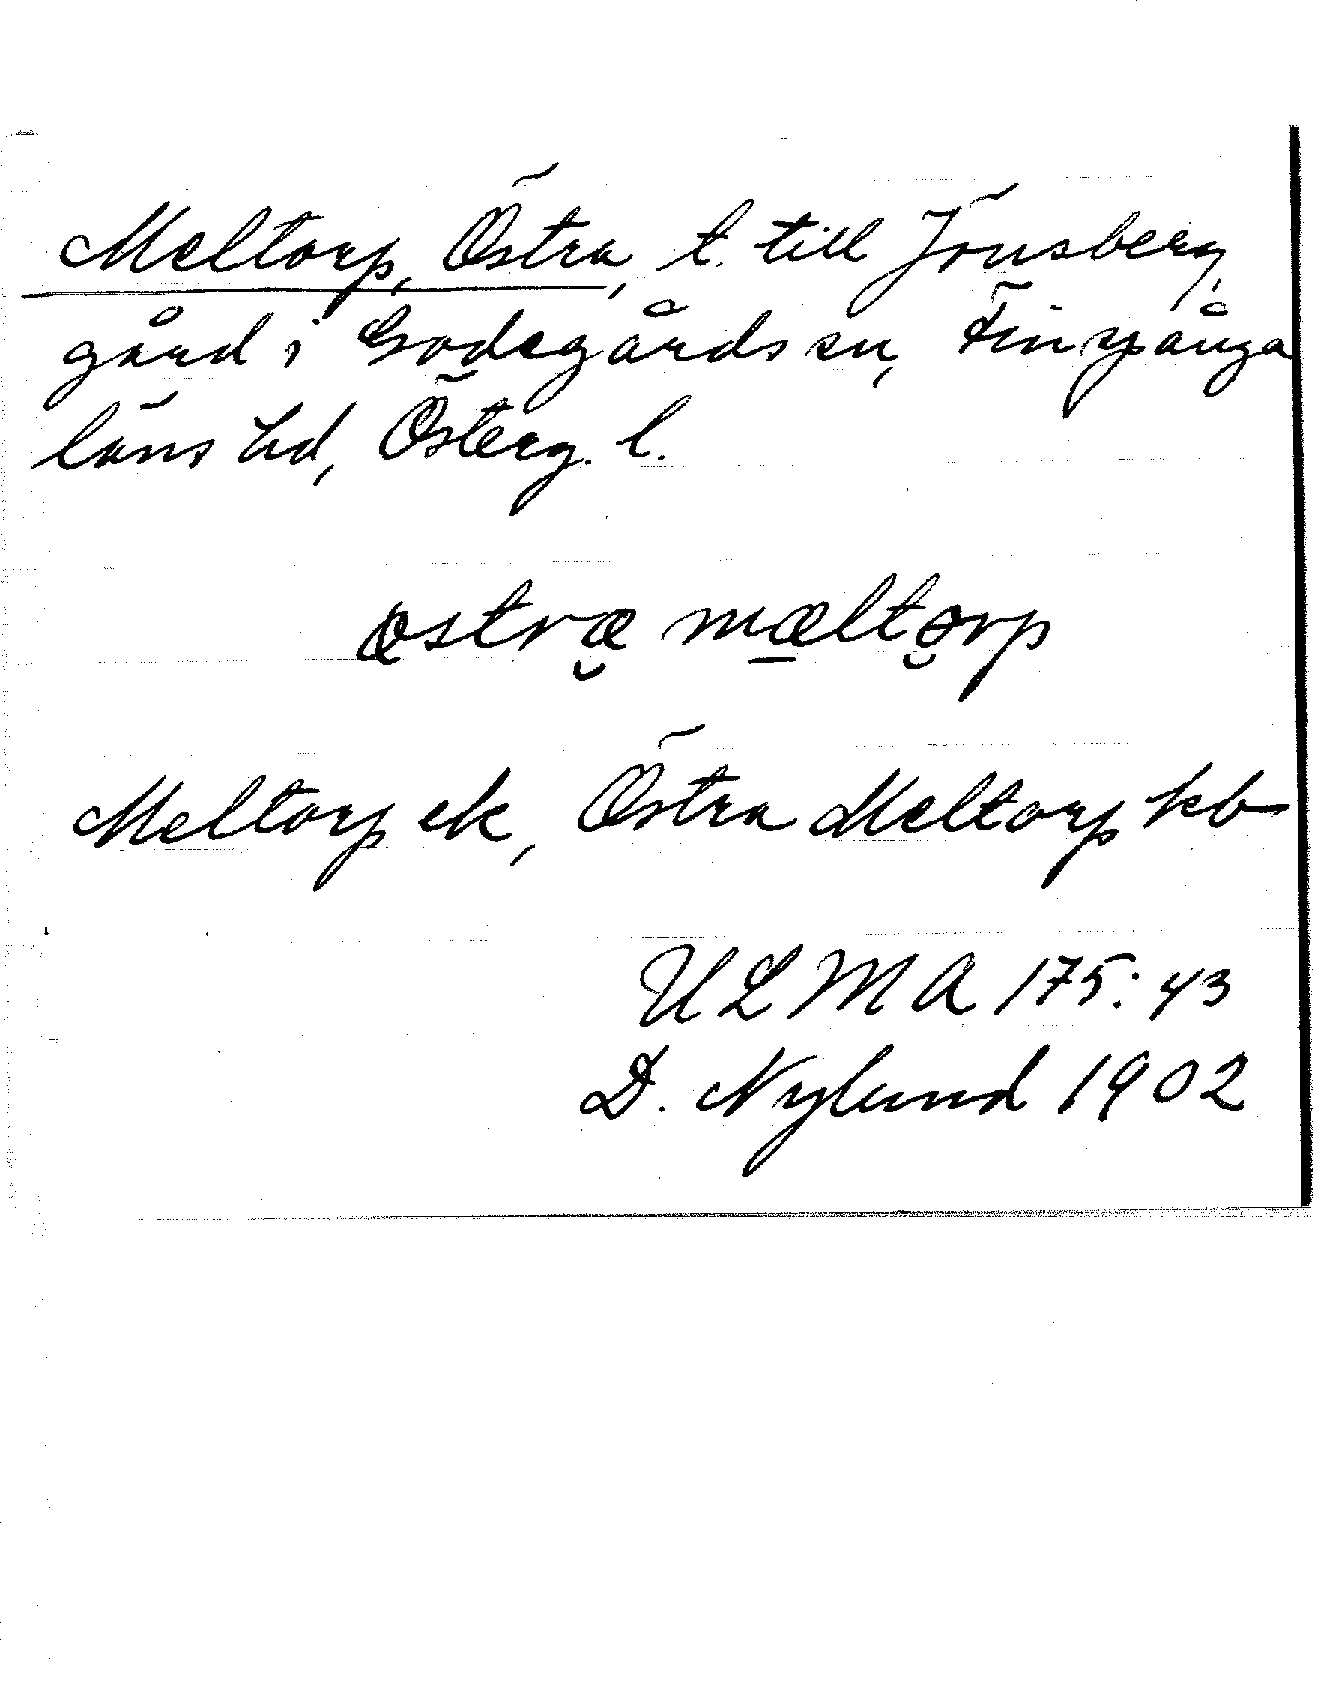 Meltorp, Östra, t. till Jönsberg,
gård i Godegårds sn, Finspånga
läns hd, Österg. l.
östræ mæltorp
Meltorp ek, Östra Meltorp kb
ULMA 175:43
D. Nylund 1902